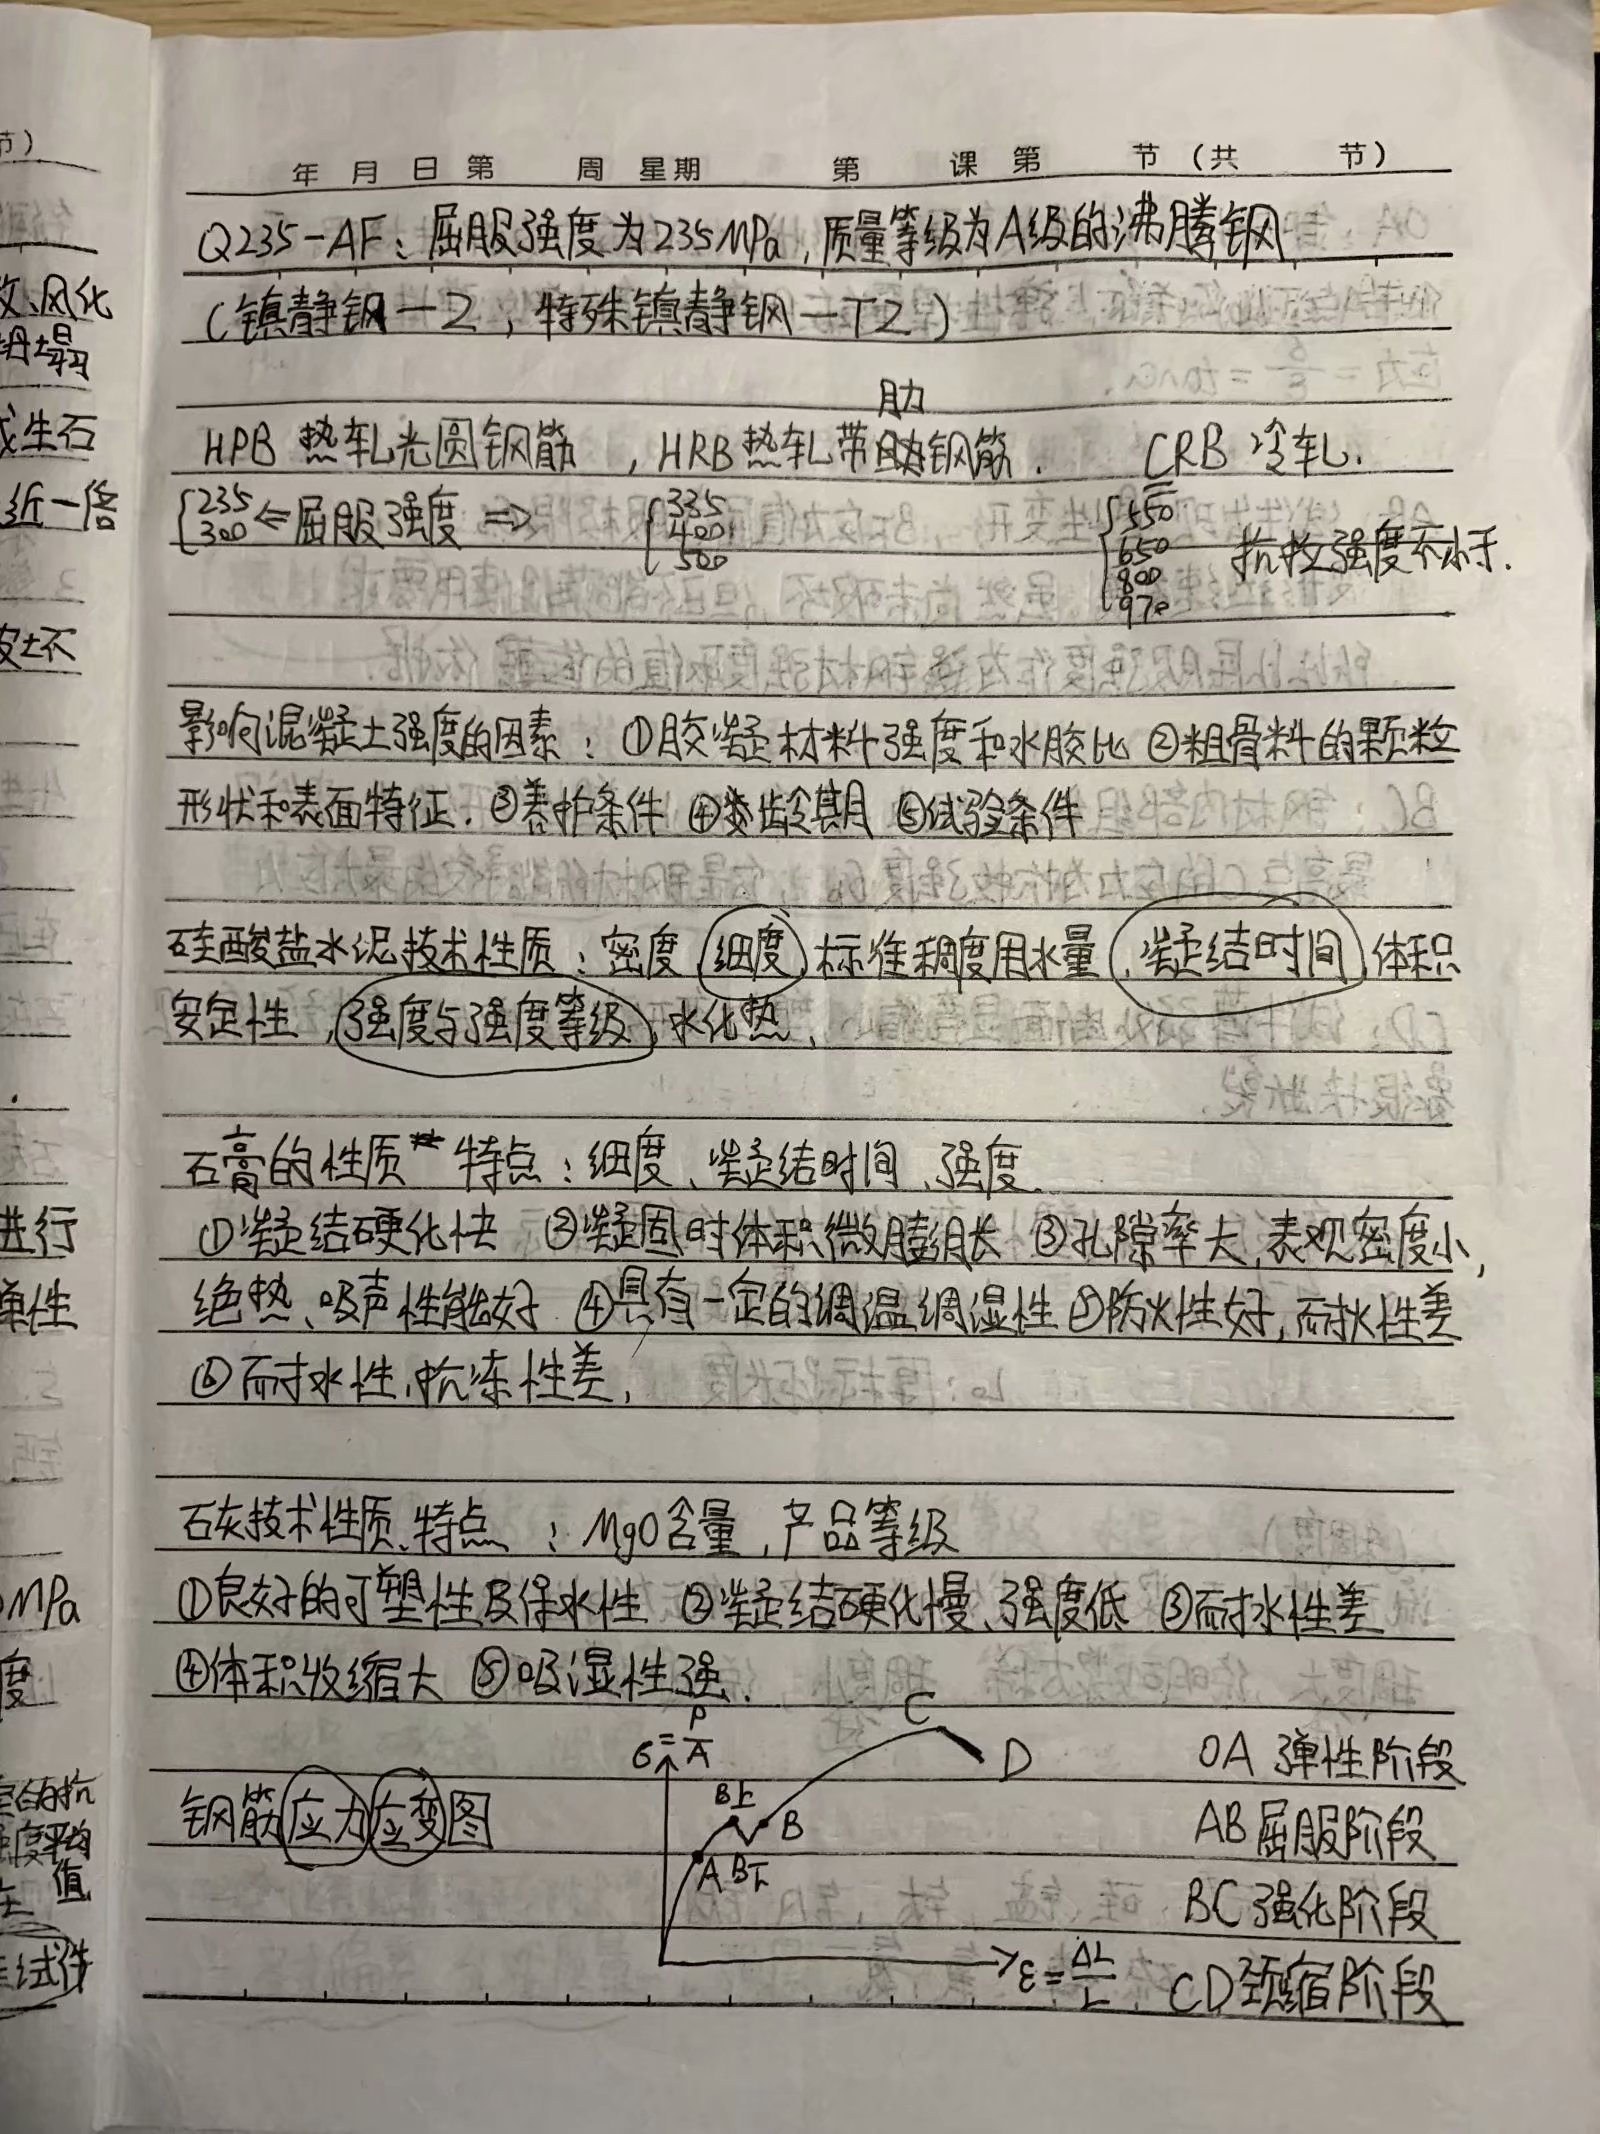 年 月 日 第 周 星期 第 课 第 节 (共 节)
Q235-AF：屈服强度为235MPa，质量等级为A级的沸腾钢
(镇静钢—Z，特殊镇静钢—TZ)
肋
HPB 热轧光圆钢筋 ，HRB热轧带肋钢筋. CRB 冷轧.
{235 300 ⇐屈服强度 ⇒ {335 400 500 {550 650 800 970 抗拉强度不小于.
影响混凝土强度的因素：①胶凝材料强度和水胶比 ②粗骨料的颗粒
形状和表面特征. ③养护条件 ④龄期 ⑤试验条件
硅酸盐水泥技术性质：密度、细度、标准稠度用水量、凝结时间、体积
安定性、强度与强度等级、水化热、
石膏的性质 特点：细度、凝结时间、强度.
①凝结硬化快 ②凝固时体积微膨胀 ③孔隙率大，表观密度小，
绝热、吸声性能好 ④具有一定的调温调湿性 ⑤防火性好，耐火性差
⑥耐水性、抗冻性差，
石灰技术性质、特点 ：MgO含量，产品等级
①良好的可塑性及保水性 ②凝结硬化慢、强度低 ③耐水性差
④体积收缩大 ⑤吸湿性强.
σ=P/A C D OA 弹性阶段
钢筋应力应变图 B上 B AB屈服阶段
A B下 BC强化阶段
ε=ΔL/L CD颈缩阶段
节)
风化
坍塌
生石
近一倍
坏
进行
单性
MPa
度
的抗
强度平均
值
试件